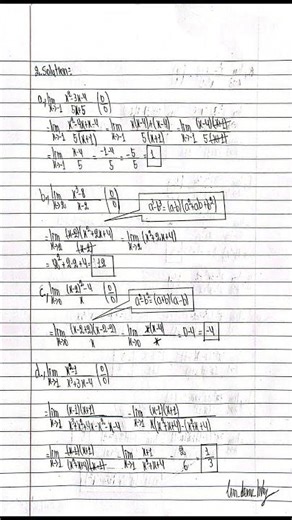 2. Solution:
a, lim x→-1 x²-3x-4 / 5x+5 (0/0)
= lim x→-1 x²-4x+x-4 / 5(x+1) = lim x→-1 x(x-4)+(x-4) / 5(x+1) = lim x→-1 (x-4)(x+1) / 5(x+1)
= lim x→-1 x-4 / 5 = -1-4 / 5 = -5 / 5
b, lim x→2 x³-8 / x-2 (0/0)
a³-b³=(a-b)(a²+ab+b²)
= lim x→2 (x-2)(x²+2x+4) / (x-2) = lim x→2 (x²+2x+4)
= 2²+2·2+4= 12
c, lim x→0 (x-2)²-4 / x (0/0)
a²-b²=(a+b)(a-b)
= lim x→0 (x-2+2)(x-2-2) / x = lim x→0 x(x-4) / x = 0-4 = -4
d, lim x→1 x²-1 / x³+3x-4 (0/0)
= lim x→1 (x-1)(x+1)
= lim x→1 (x-1)(x+1)
= lim x→1 (x-1)(x+1) / (x²+x+4)(x-1) = lim x→1 x+1 / x²+x+4 = 2 / 6 = 1 / 3